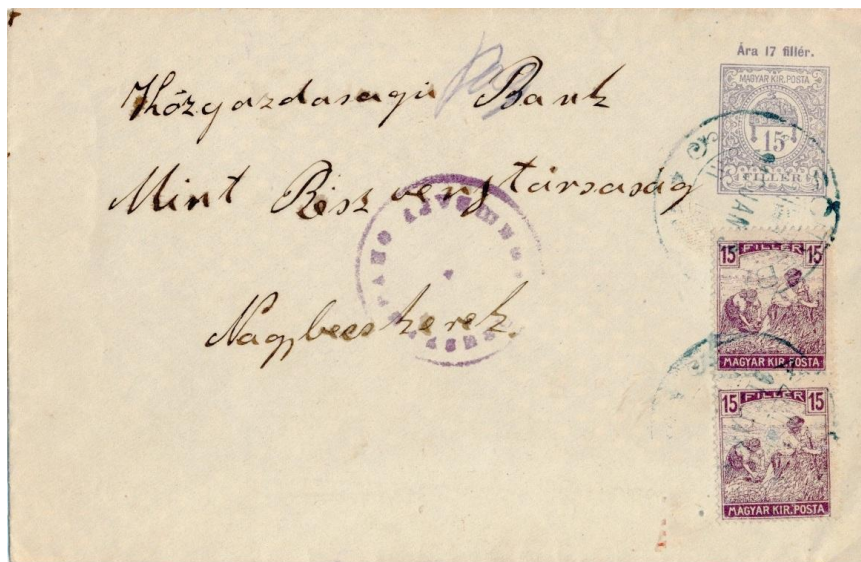 Ára 17 fillér.
MAGYAR KIR. POSTA
15
FILLÉR
Közgazdasagi Bank
Mint Részvenytársaság
Nagybecskerek.
15 FILLÉR 15
MAGYAR KIR. POSTA
15 FILLÉR 15
MAGYAR KIR. POSTA